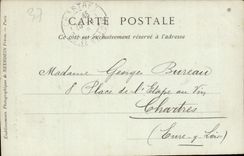 37
CHARTRES
CARTE POSTALE
Ce côté est exclusivement réservé à l'adresse
Madame Georges Bureau
8 Place de l'Étape au Vin
Chartres
(Eure & Loir)
Établissements Photographiques de NEURDEIN Frères. — Paris